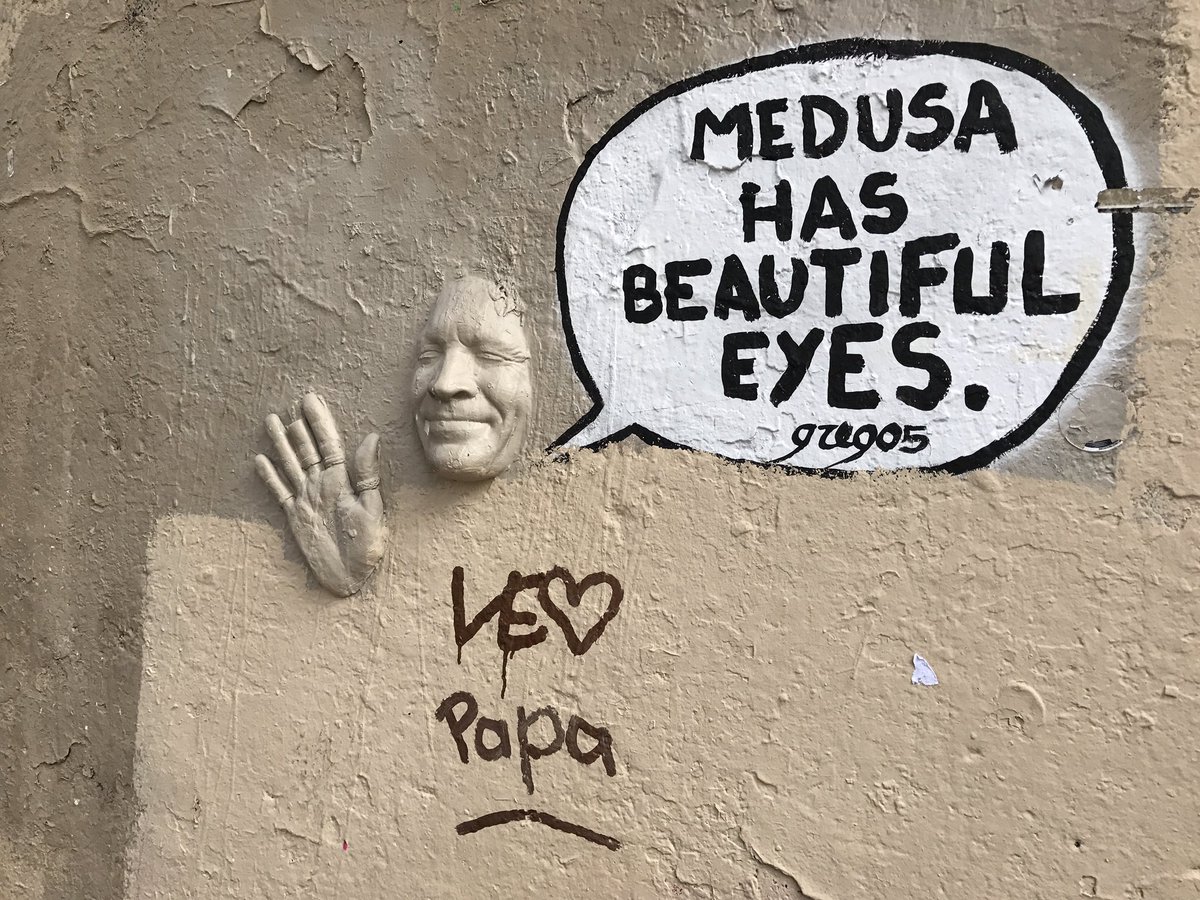 MEDUSA
HAS
BEAUTIFUL
EYES.
gregos
LE♡
Papa